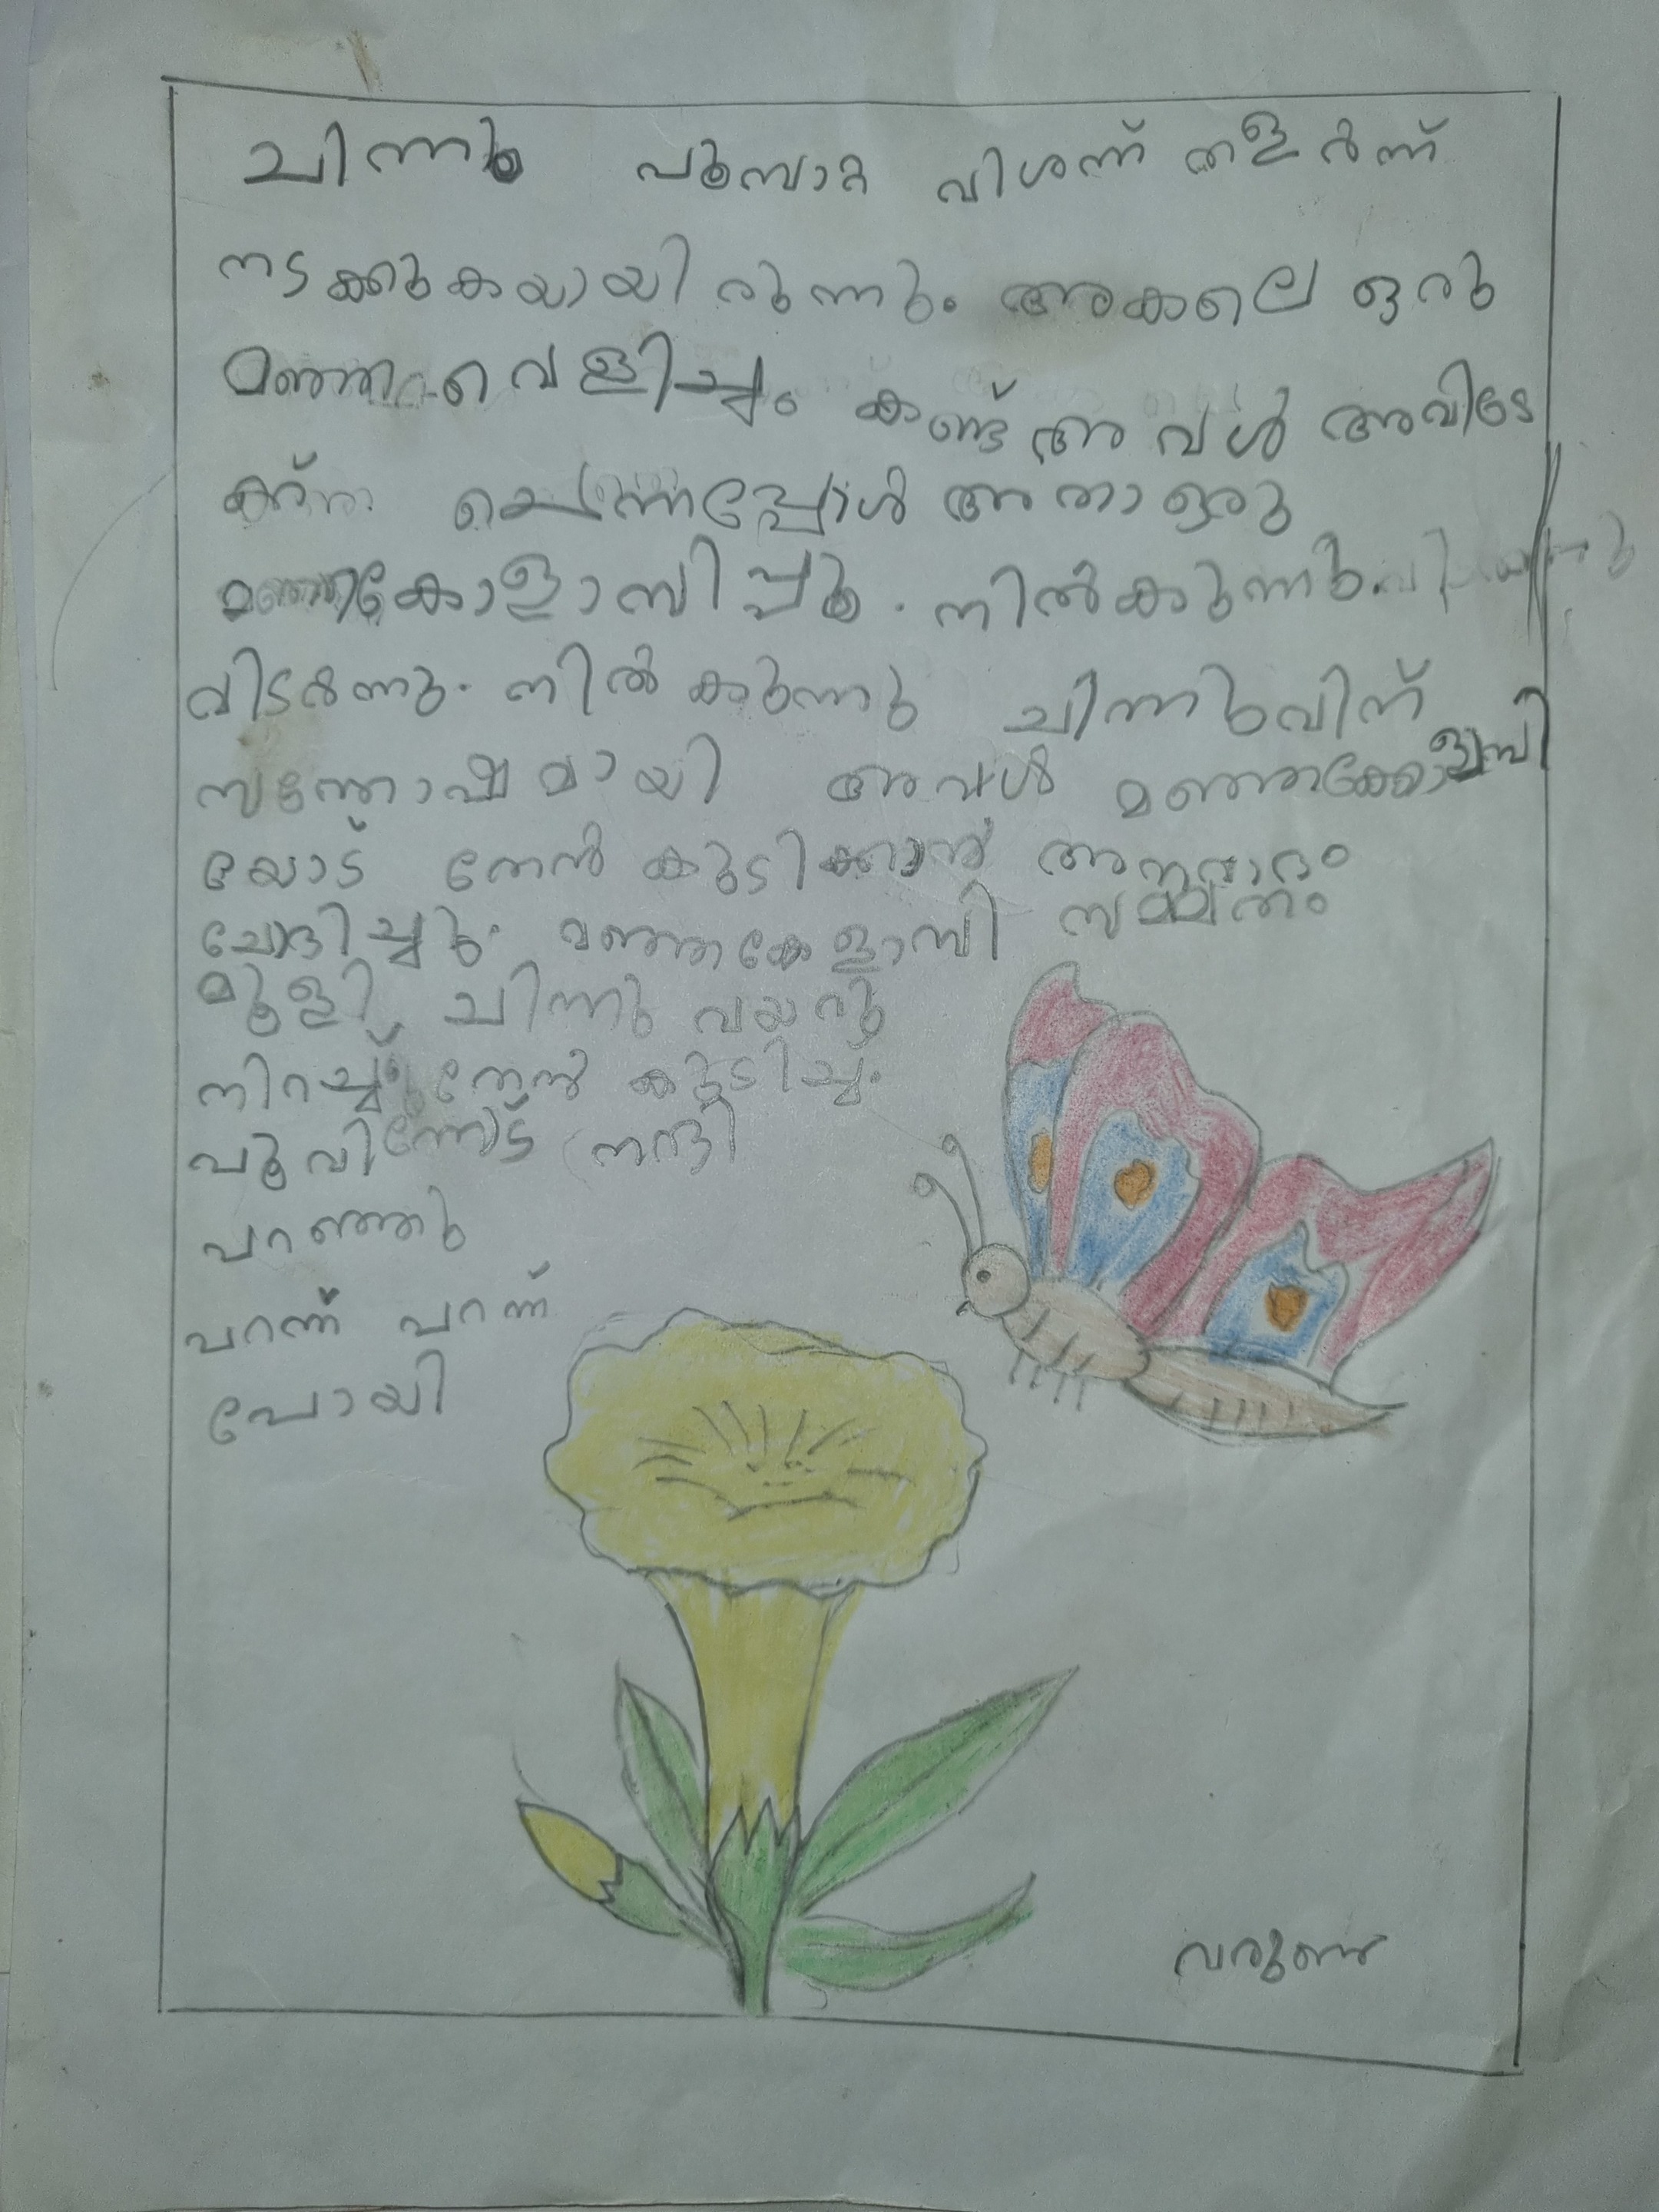 ചിന്നു പൂമ്പാറ്റ വിശന്ന് തളർന്ന്
നടക്കുകയായിരുന്നു. അകലെ ഒരു
മഞ്ഞ വെളിച്ചം കണ്ട് അവൾ അവിടേ
ക്ക് ചെന്നപ്പോൾ അതാ ഒരു
മഞ്ഞകോളാമ്പിപ്പൂ. നിൽകുന്നു.
വിടർന്നു. നിൽകുന്നു ചിന്നുവിന്
സന്തോഷമായി അവൾ മഞ്ഞക്കോളാമ്പി
യോട് തേൻ കുടിക്കാൻ അനുവാദം
ചോദിച്ചു. മഞ്ഞകേളാമ്പി സമ്മതം
മൂളി ചിന്നു വയറു
നിറച്ചു തേൻ കുടിച്ചു.
പൂവിന്നോട് നന്ദി
പറഞ്ഞു
പറന്ന് പറന്ന്
പോയി
വരുൺ